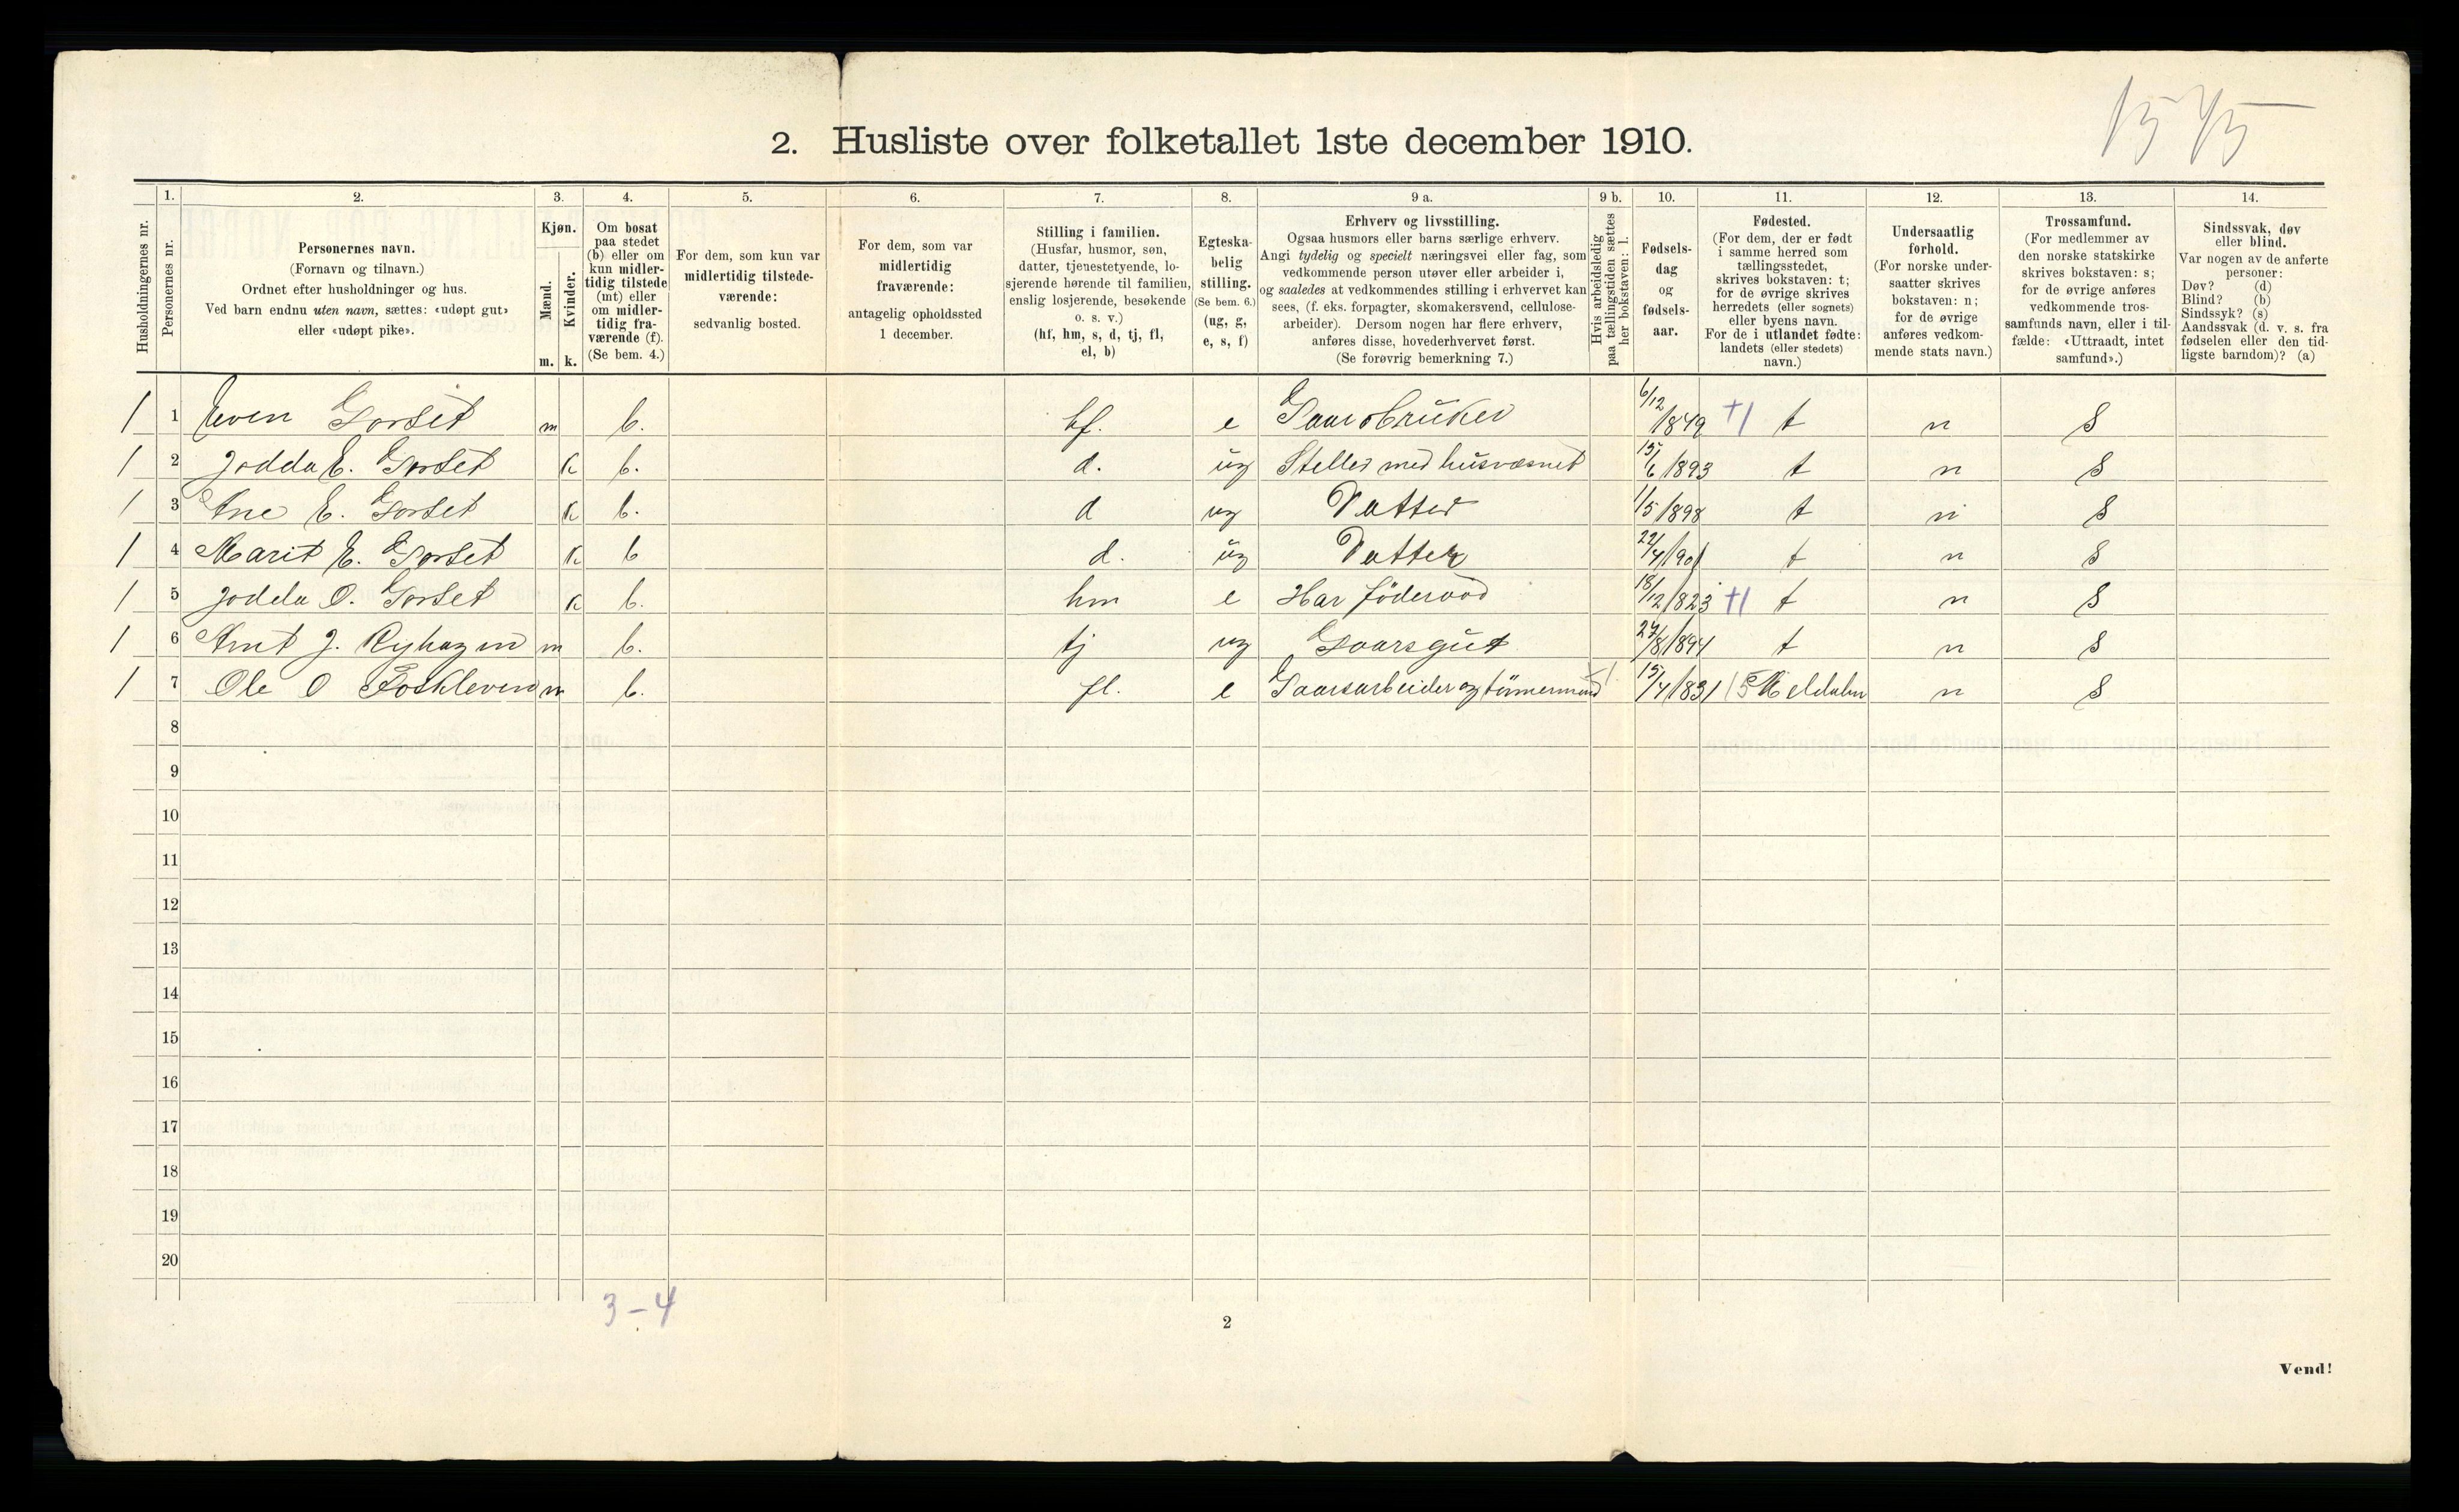 1545
2. Husliste over folketallet 1ste december 1910.
Husholdningernes nr.
1. Personernes nr.
2. Personernes navn. (Fornavn og tilnavn.) Ordnet efter husholdninger og hus. Ved barn endnu uten navn, sættes: «udøpt gut» eller «udøpt pike».
3. Kjøn. Mænd. m. Kvinder. k.
4. Om bosat paa stedet (b) eller om kun midlertidig tilstede (mt) eller om midlertidig fraværende (f). (Se bem. 4.)
5. For dem, som kun var midlertidig tilstedeværende: sedvanlig bosted.
6. For dem, som var midlertidig fraværende: antagelig opholdssted 1 december.
7. Stilling i familien. (Husfar, husmor, søn, datter, tjenestetyende, losjerende hørende til familien, enslig losjerende, besøkende o. s. v.) (hf, hm, s, d, tj, fl, el, b)
8. Egteskabelig stilling. (Se bem. 6.) (ug, g, e, s, f)
9 a. Erhverv og livsstilling. Ogsaa husmors eller barns særlige erhverv. Angi tydelig og specielt næringsvei eller fag, som vedkommende person utøver eller arbeider i, og saaledes at vedkommendes stilling i erhvervet kan sees, (f. eks. forpagter, skomakersvend, cellulosearbeider). Dersom nogen har flere erhverv, anføres disse, hovederhvervet først. (Se forøvrig bemerkning 7.)
9 b. Hvis arbeidsledig paa tællingstiden sættes her bokstaven: l.
10. Fødselsdag og fødselsaar.
11. Fødested. (For dem, der er født i samme herred som tællingsstedet, skrives bokstaven: t; for de øvrige skrives herredets (eller sognets) eller byens navn. For de i utlandet fødte: landets (eller stedets) navn.)
12. Undersaatlig forhold. (For norske undersaatter skrives bokstaven: n; for de øvrige anføres vedkommende stats navn.)
13. Trossamfund. (For medlemmer av den norske statskirke skrives bokstaven: s; for de øvrige anføres vedkommende trossamfunds navn, eller i tilfælde: «Uttraadt, intet samfund».)
14. Sindssvak, døv eller blind. Var nogen av de anførte personer: Døv? (d) Blind? (b) Sindssyk? (s) Aandssvak (d. v. s. fra fødselen eller den tidligste barndom)? (a)
1 1 Even Gorset m b. hf. e Gaardbruker 6/12 1849 t n S
1 2 Jodda E. Gorset k b. d. ug Steller med husvæsnet 15/6 1893 t n S
1 3 Ane E. Gorset k b. d ug Datter 1/5 1898 t n S
1 4 Marit E. Gorset k b d. ug Datter 22/4 1901 t n S
1 5 Jodda O. Gorset k b. hm e Har föderaad 18/12 1823 t n S
1 6 Arnt J. Ryhagen m b. tj ug Gaarsgut 27/8 1894 t n S
1 7 Ole O Foskleven m b. fl. e Gaarsarbeider og tümermand 15/4 1831 Meldalen n S
8
9
10
11
12
13
14
15
16
17
18
19
20
3 - 4
2
Vend!